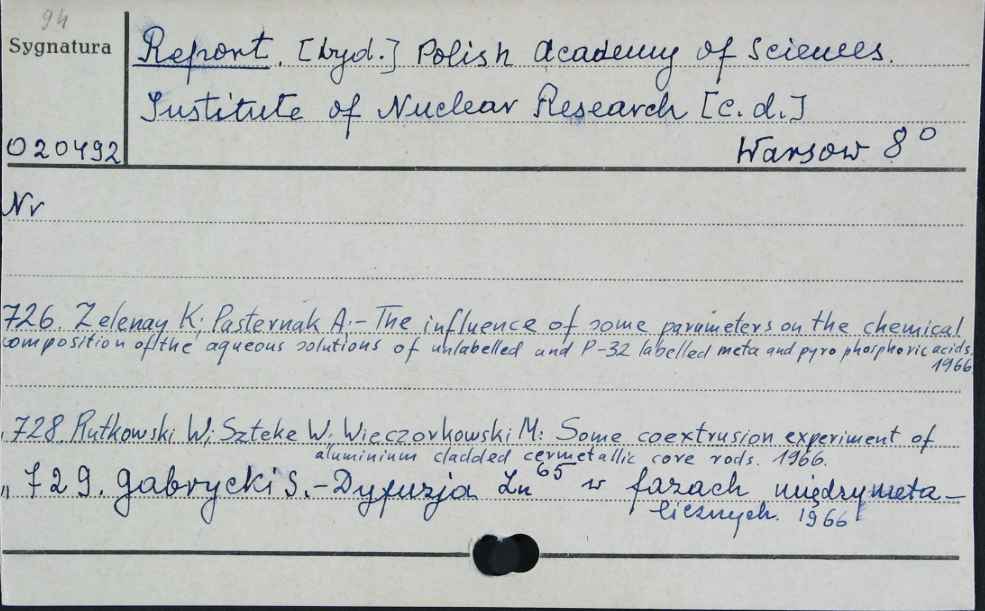 94
Sygnatura
Report. [Wyd.] Polish Academy of Sciences.
Institute of Nuclear Research [c.d.]
020492
Warsow 8°
Nr
726. Zelenay K; Pasternak A:- The influence of some parameters on the chemical
composition of the aqueous solutions of unlabelled and P-32 labelled meta and pyro phosphoric acids.
1966
728 Rutkowski W; Szteke W; Wieczorkowski M: Some coextrusion experiment of
aluminium cladded cermetallic core rods. 1966.
" 729. Gabrycki S.- Dyfuzja Zn65 w fazach międzymeta-
licznych. 1966